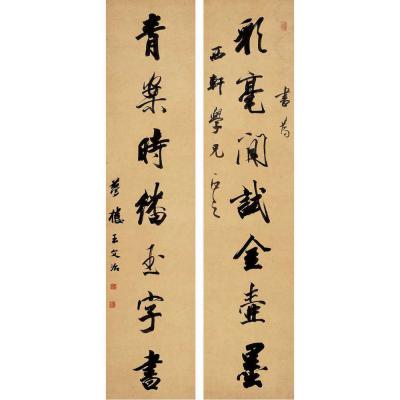 彩毫閒試金壺墨
書爲
西軒學兄正之
青案時繙玉字書
夢樓王文治